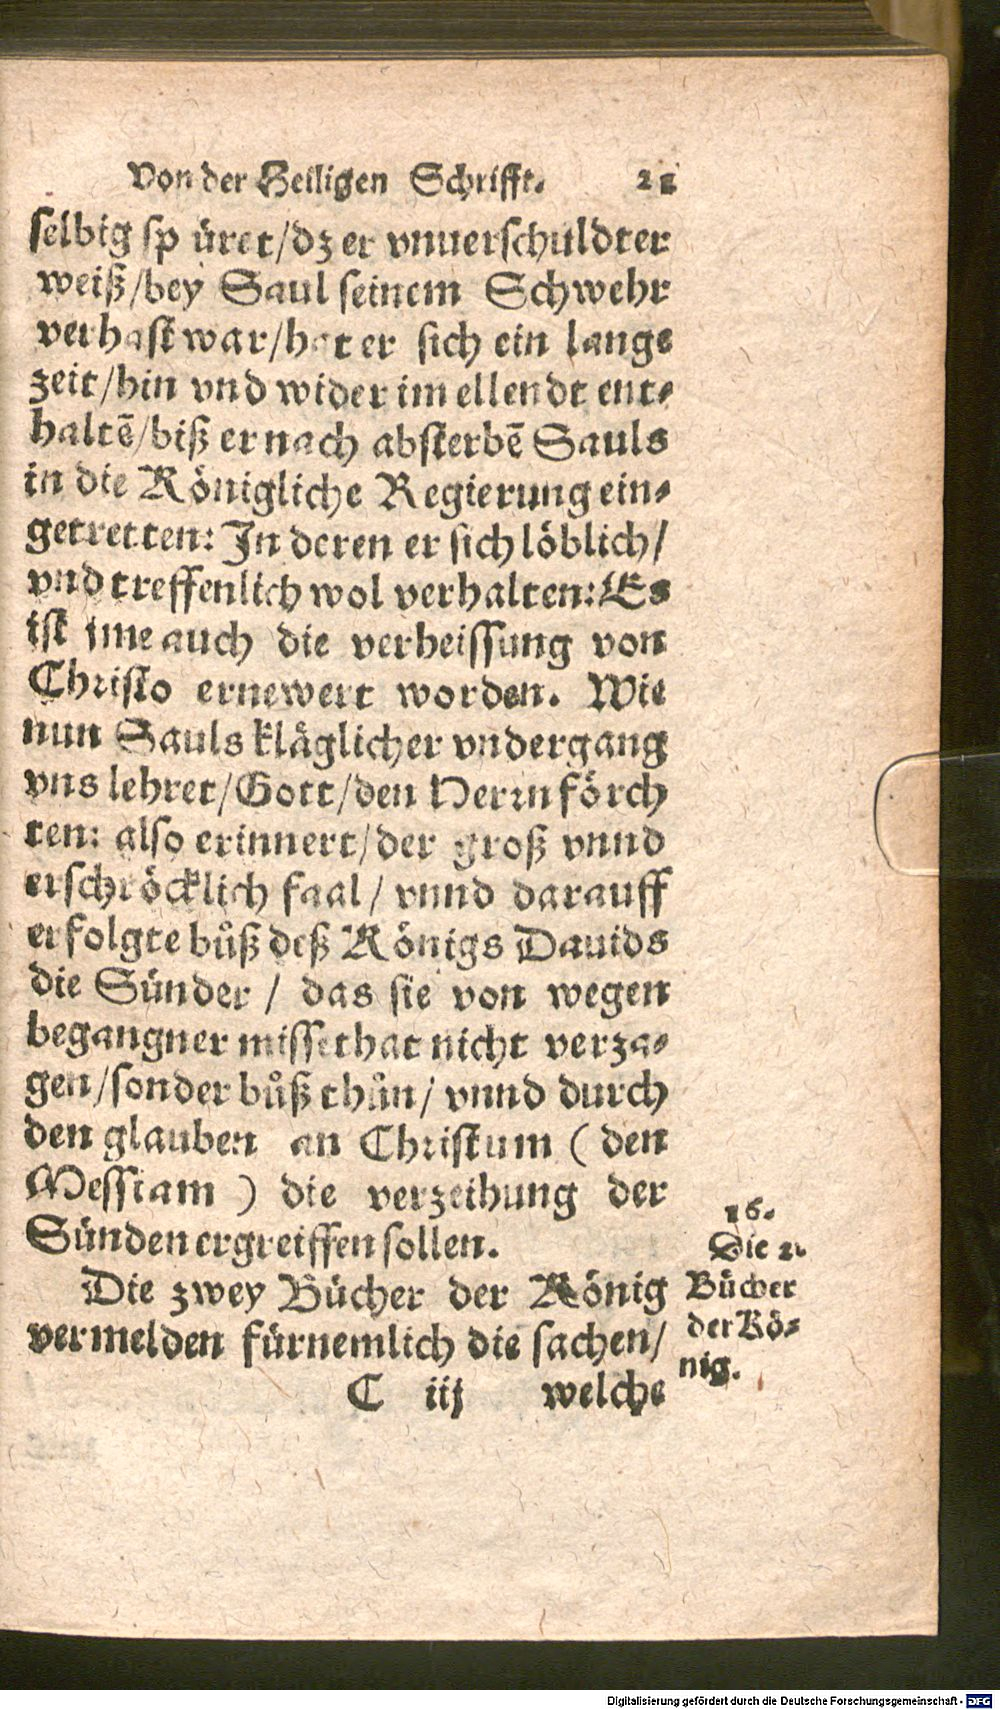 Von der Heiligen Schrifft. 21
selbig sp üret/dz er vnuerschuldter
weiß/bey Saul seinem Schwehr
verhast war/hat er sich ein lange
zeit/hin vnd wider im ellendt ent-
haltē/biß er nach absterbē Sauls
in die Königliche Regierung ein-
getretten: In deren er sich löblich/
vnd treffenlich wol verhalten: Es
ist ime auch die verheissung von
Christo ernewert worden. Wie
nun Sauls kläglicher vndergang
vns lehret/Gott/den Herrn förch
ten: also erinnert/der groß vnnd
erschröcklich faal/ vnnd darauff
erfolgte bůß deß Königs Dauids
die Sünder/ das sie von wegen
begangner missethat nicht verza-
gen/sonder bůß thůn/ vnnd durch
den glauben an Christum (den
Messiam) die verzeihung der
Sünden ergreiffen sollen.
Die zwey Bücher der König
vermelden fürnemlich die sachen/
C iij welche
16.
Die 2.
Bücher
der Kö-
nig.
Digitalisierung gefördert durch die Deutsche Forschungsgemeinschaft - DFG